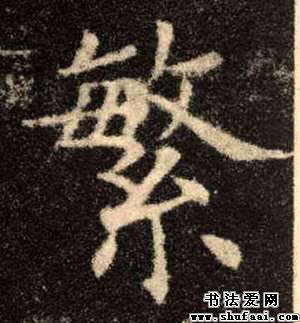 繁
书法爱网
www.shufaai.com